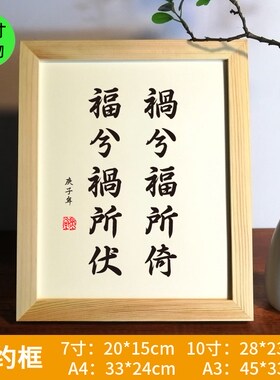 禍兮福所倚
福兮禍所伏
庚子年
寸
物
约框
7寸：20*15cm
10寸：28*23
A4：33*24cm
A3：45*3